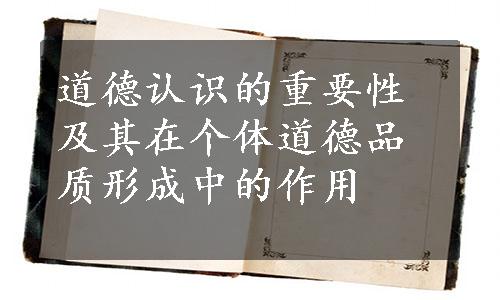 道德认识的重要性
及其在个体道德品
质形成中的作用